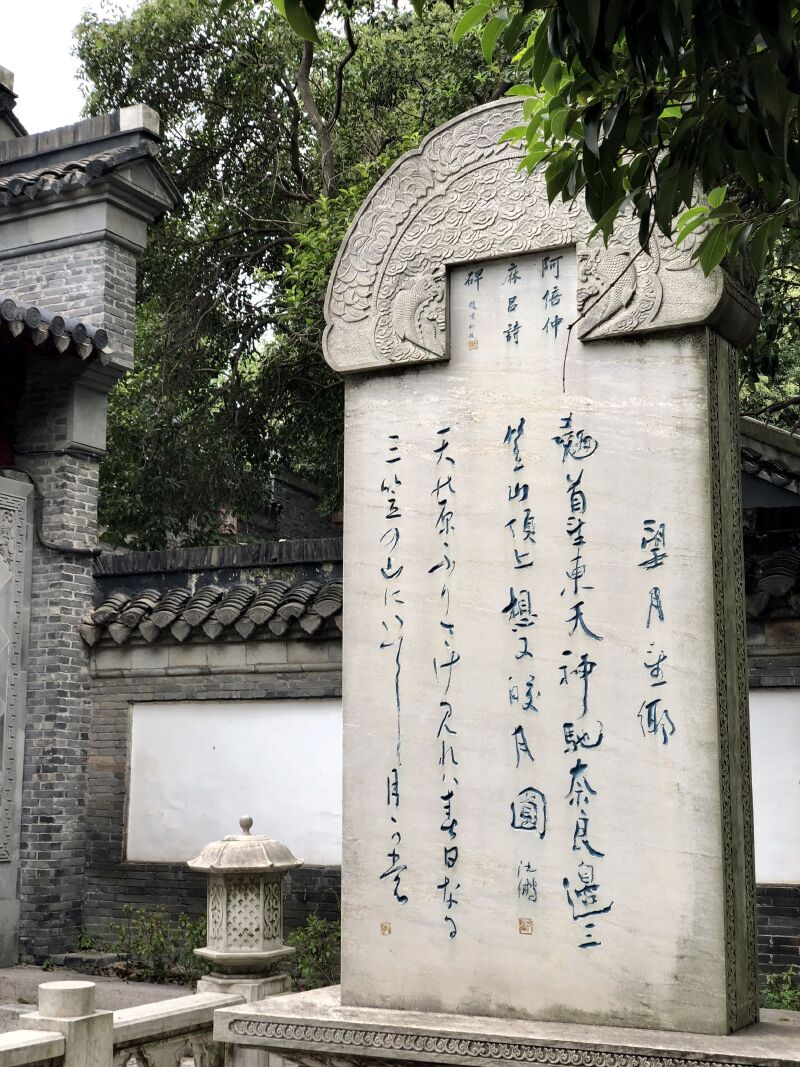 阿倍仲
麻呂詩
碑
趙樸初題
望月望鄉
翹首望東天神馳奈良邊三
笠山頂上想又皎月圓
沈鵬
天の原ふりさけ見れハ春日なる
三笠の山にいてし月可裳